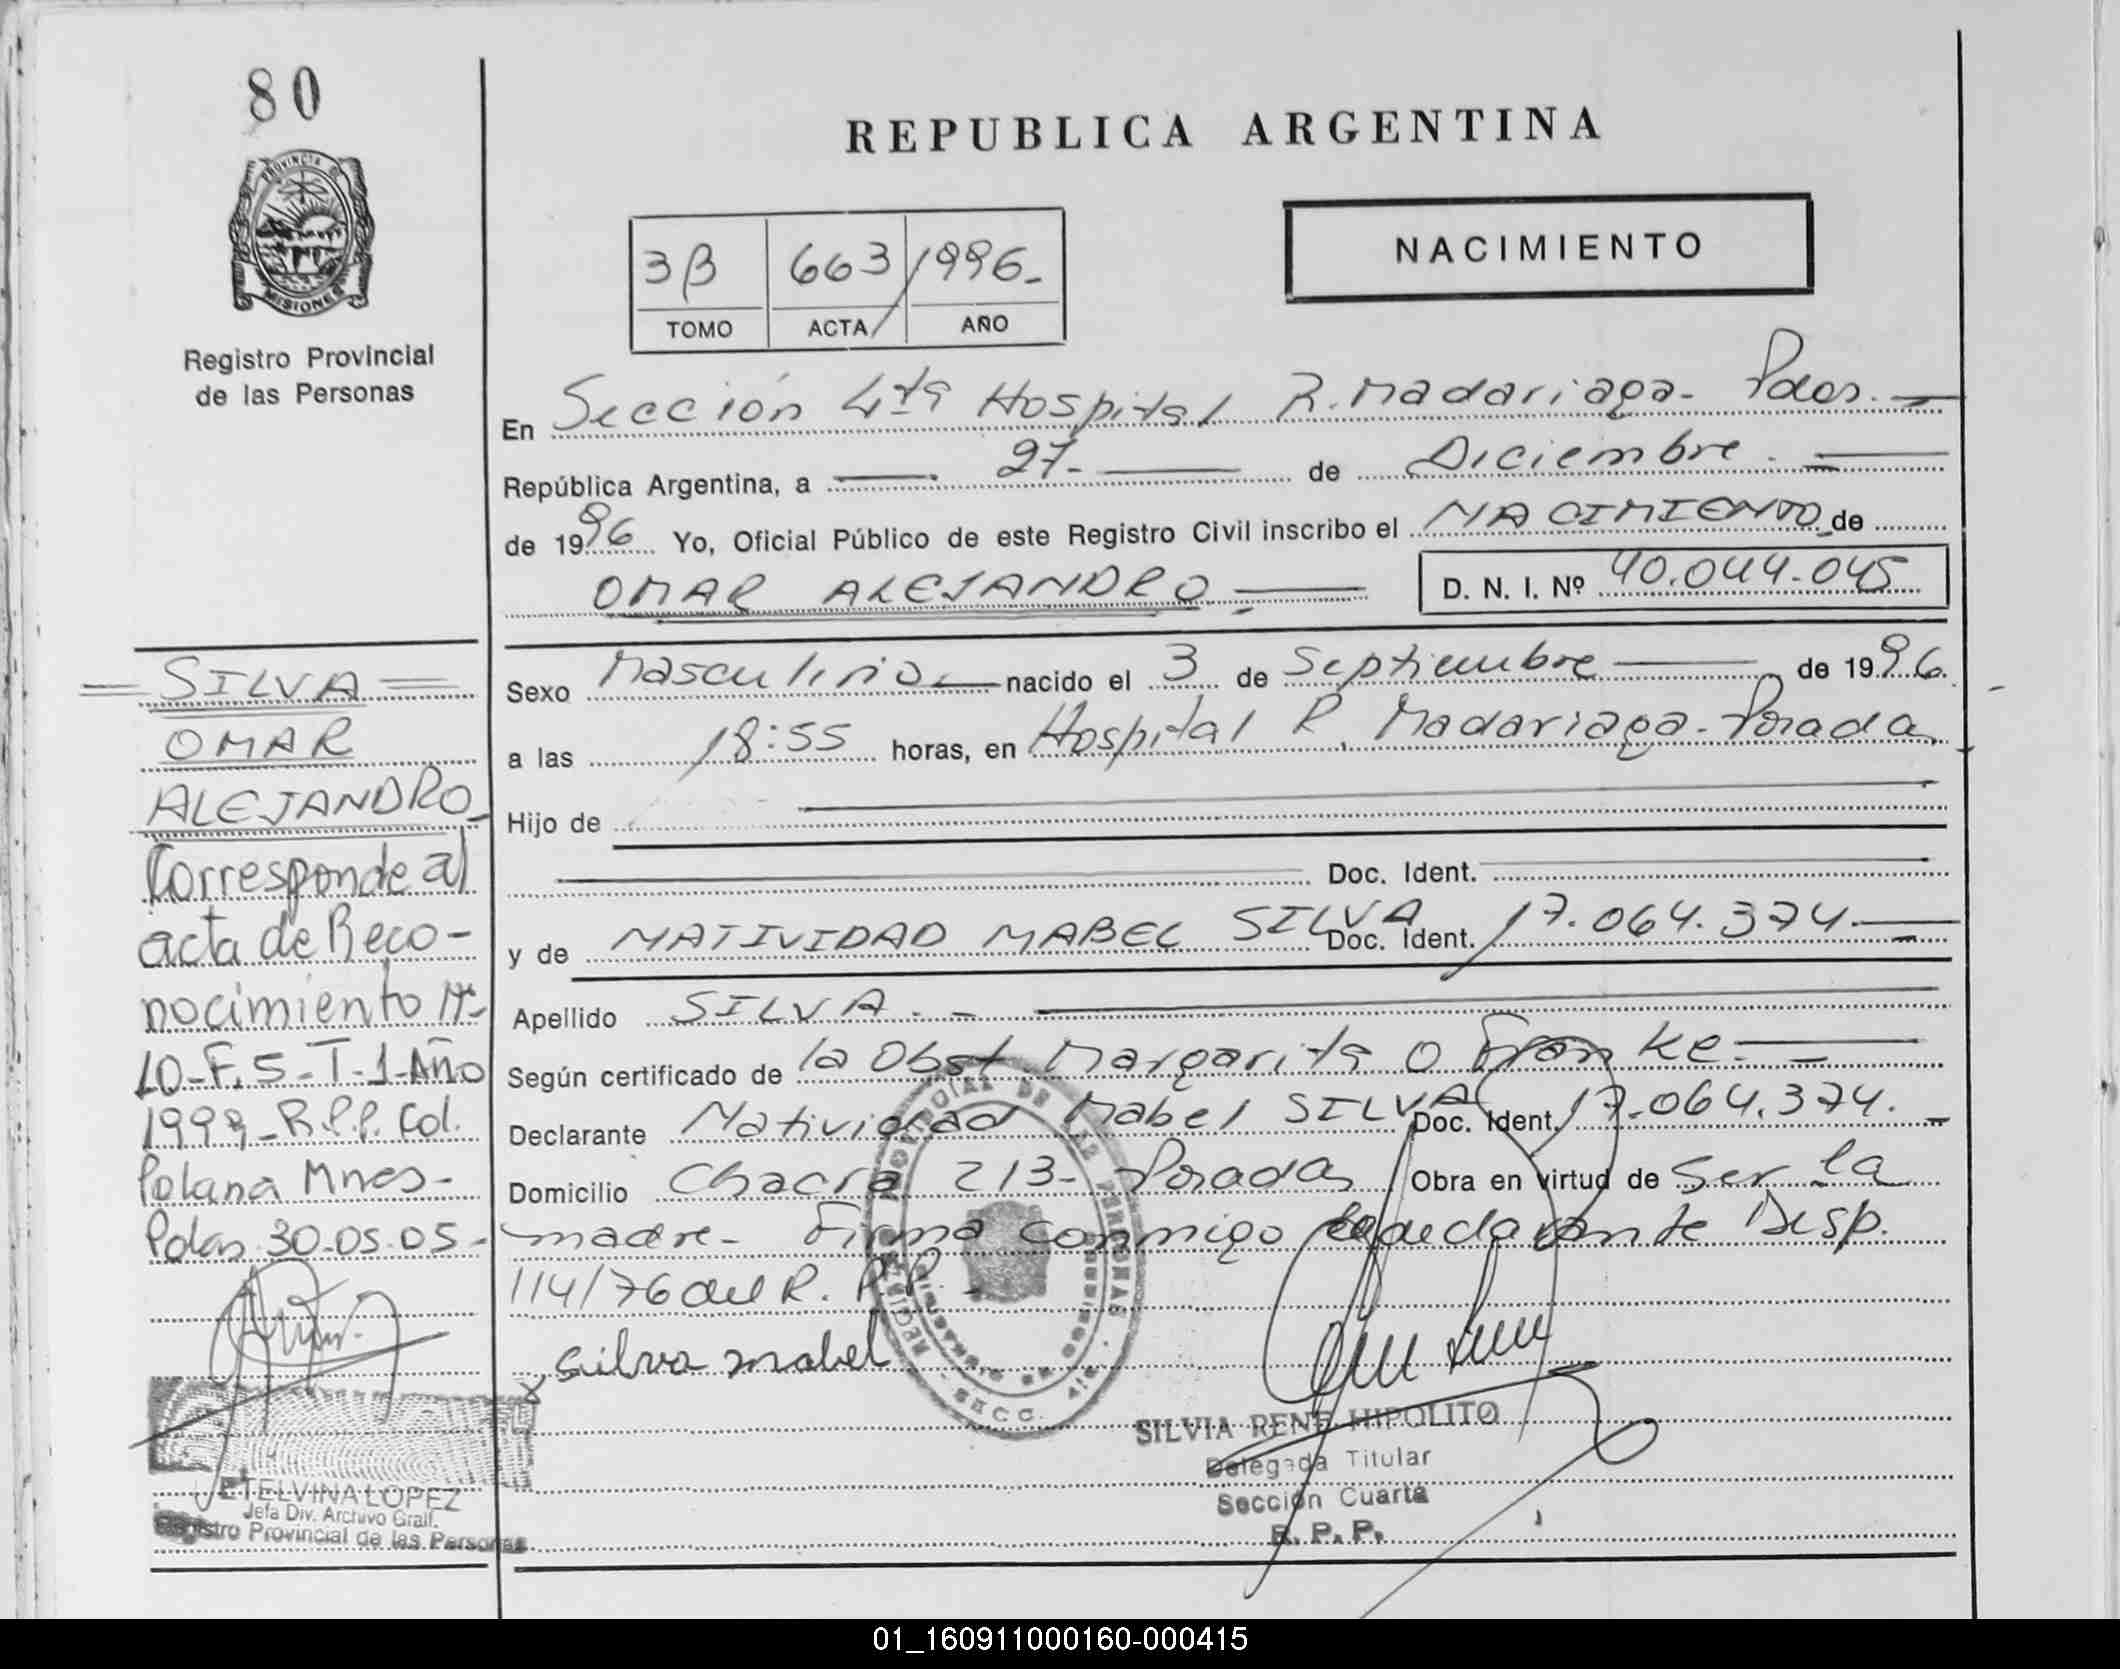 80
PROVINCIA DE
MISIONES
Registro Provincial
de las Personas
REPUBLICA ARGENTINA
NACIMIENTO
3B 663 / 1996.-
TOMO ACTA AÑO
En Sección 4ta Hospital R. Madariaga- Pdas.-
República Argentina, a 27- de Diciembre.-
de 1996 Yo, Oficial Público de este Registro Civil inscribo el NACIMIENTO de
OMAR ALEJANDRO.- D. N. I. Nº 40.044.045
Sexo Masculino.- nacido el 3 de Septiembre de 1996.
a las 18:55 horas, en Hospital R. Madariaga-Posadas
Hijo de
Doc. Ident.
y de NATIVIDAD MABEL SILVA Doc. Ident. 17.064.374.-
Apellido SILVA.-
Según certificado de la Obst Margarita O Franke.-
Declarante Natividad Mabel SILVA Doc. Ident. 17.064.374.-
Domicilio Chacra 213- Posadas Obra en virtud de Ser la
madre- Firma conmigo declarante Disp.
114/76 del R. P.P.-
silva mabel
SILVIA RENE HIPOLITO
Delegada Titular
Sección Cuarta
R. P. P.
SILVA
OMAR
ALEJANDRO-
Corresponde al
acta de Reco-
nocimiento Nº
10-F.5-T-1-Año
1999-R.P.P. Col.
Polana Mnes-
Pdas 30-05-05-
ETELVINA LOPEZ
Jefa Div. Archivo Gral.
Registro Provincial de las Personas
01_160911000160-000415